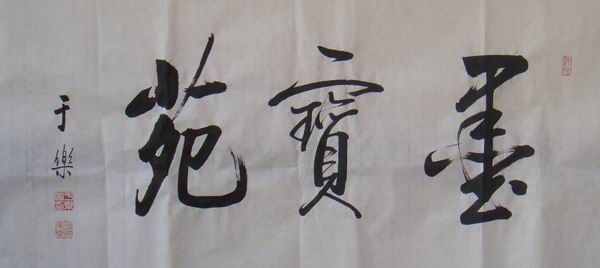 墨寶苑
于樂